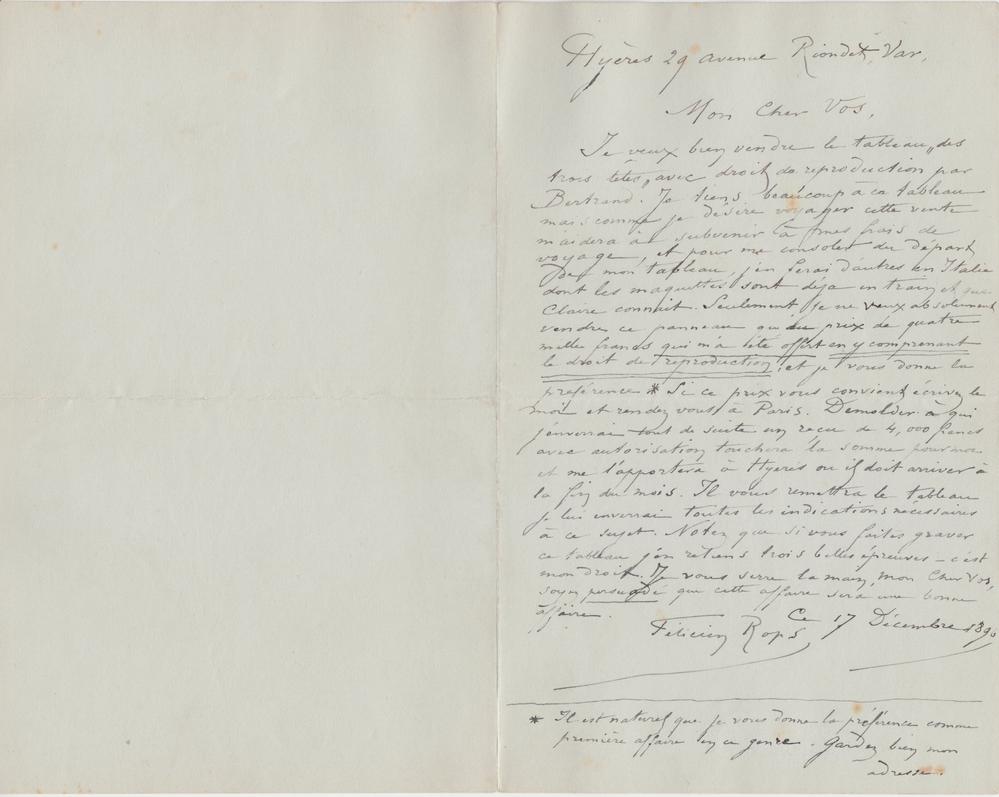 Hyères 29 avenue Riondet, Var,
Mon Cher Vos,
Je veux bien vendre le tableau „des
trois têtes„ avec droit de reproduction par
Bertrand. Je tiens beaucoup à ce tableau
mais comme je désire voyager cette vente
m'aidera à subvenir à mes frais de
voyage, et pour me consoler du départ
de mon tableau, j'en ferai d'autres en Italie
dont les maquettes sont déja en train et que
Claire connait. Seulement je ne veux absolument
vendre ce panneau qu'au prix de quatre
mille francs qui m'a été offert en y comprenant
le droit de reproduction, et je vous donne la
préférence * Si ce prix vous convient écrivez le
moi et rendez vous à Paris. Demolder à qui
j'enverrai tout de suite un reçu de 4,000 francs
avec autorisation touchera la somme pour moi
et me l'apportera à Hyères ou il doit arriver à
la fin du mois. Il vous remettra le tableau
je lui enverrai toutes les indications nécessaires
à ce sujet. Notez que si vous faites graver
ce tableau j'en retiens trois belles épreuves – c'est
mon droit. Je vous serre la main, mon Cher Vos,
soyez persuadé que cette affaire sera une bonne
affaire.
Ce 17 Décembre
Félicien Rops
* Il est naturel que je vous donne la préférence comme
première affaire en ce genre. Gardez bien mon
adresse.